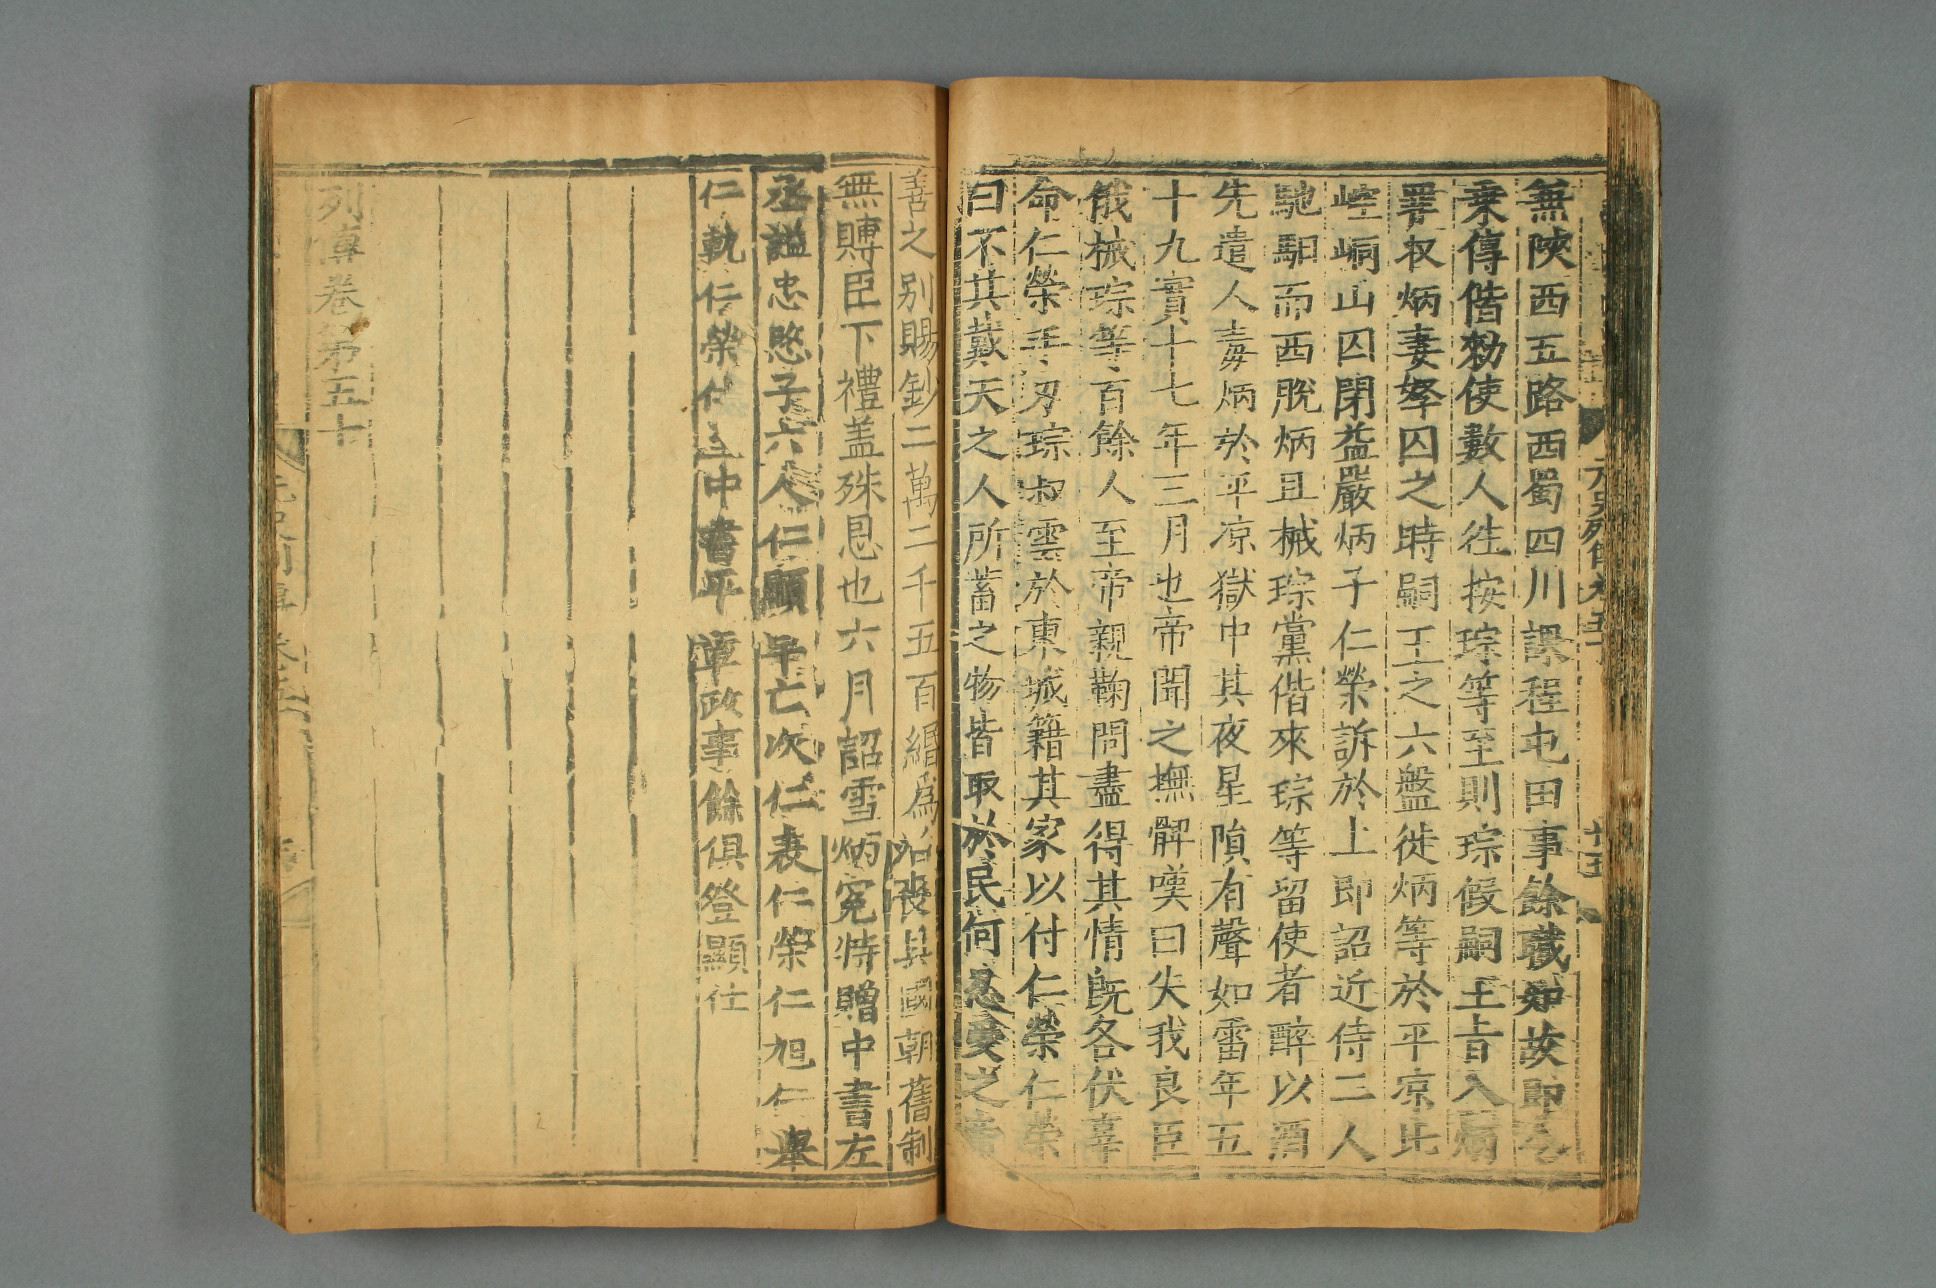 無陝西五路西蜀四川課程屯田事餘職如故即
乗傳偕勑使數人往按琮等至則琮假嗣王旨入炳
署収炳妻孥囚之時嗣王之六盤徙炳等於平凉北
崆峒山囚閉益嚴炳子仁榮訴於上即詔近侍二人
馳馹而西脫炳且械琮黨偕來琮等留使者醉以酒
先遣人毒炳於平凉獄中其夜星隕有聲如雷年五
十九實十七年三月也帝聞之撫髀嘆曰失我良臣
俄械琮等百餘人至帝親鞠問盡得其情旣各伏辜
命仁榮手刃琮叔雲於東城籍其家以付仁榮仁榮
曰不共戴天之人所蓄之物皆取於民何忍受之帝
善之别賜鈔二萬二千五百緡爲治喪具國朝舊制
無賻臣下禮盖殊恩也六月詔雪炳寃特贈中書左
丞謚忠愍子六人仁顯早亡次仁表仁榮仁旭仁舉
仁軌仁榮仕至中書平章政事餘俱登顯仕
列傳卷第五十
元史列傳卷五十
廿五